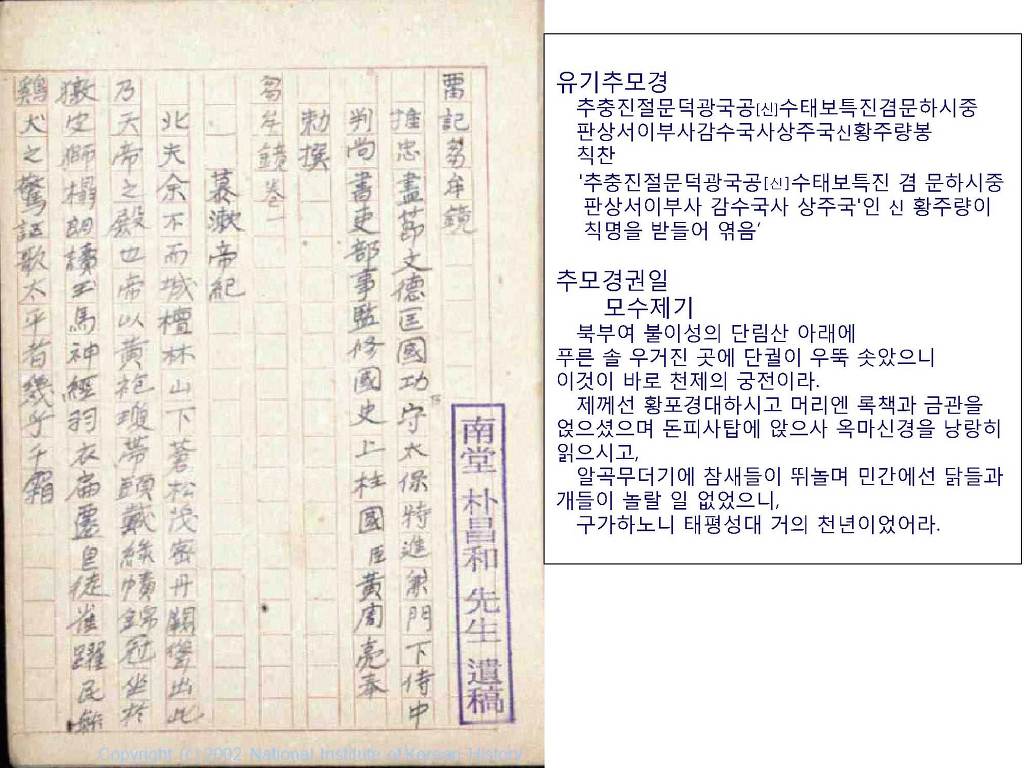 留記芻牟鏡
推忠盡節文德匡國功守太保特進兼門下侍中
判尚書吏部事監修國史上柱國臣黃周亮奉
勅撰
芻牟鏡卷一
慕漱帝紀
北夫余不而城檀林山下蒼松茂密丹闕聳出此
乃天帝之殿也帝以黃袍瓊帶頭戴綠幘錦冠坐於
皮獅榻朗讀玉馬神經羽衣扁皇徒雀躍民無
鷄犬之驚謳歌太平者幾乎千霜
南堂 朴昌和 先生 遺稿
Copyright (c) 2002 National Institute of Korean History
유기추모경
추충진절문덕광국공[신]수태보특진겸문하시중
판상서이부사감수국사상주국신황주량봉
칙찬
'추충진절문덕광국공[신]수태보특진 겸 문하시중
판상서이부사 감수국사 상주국'인 신 황주량이
칙명을 받들어 엮음'
추모경권일
모수제기
북부여 불이성의 단림산 아래에
푸른 솔 우거진 곳에 단궐이 우뚝 솟았으니
이것이 바로 천제의 궁전이라.
제께선 황포경대하시고 머리엔 록책과 금관을
얹으셨으며 돈피사탑에 앉으사 옥마신경을 낭랑히
읽으시고,
알곡무더기에 참새들이 뛰놀며 민간에선 닭들과
개들이 놀랄 일 없었으니,
구가하노니 태평성대 거의 천년이었어라.